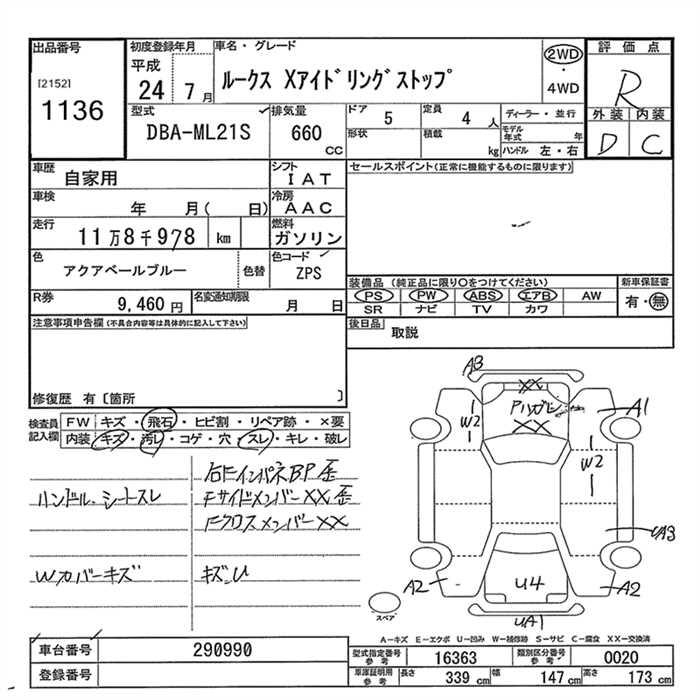 出品番号
[2152]
1136
初度登録年月
平成
24 7月
車名・グレード
ルークス Xアイドリングストップ
2WD
・
4WD
評価点
R
外装 内装
D C
型式
DBA-ML21S
排気量
660
CC
ドア 5
定員 4 人
形状
積載 kg
ディーラー・並行
モデル年式 年
ハンドル 左・右
車歴
自家用
シフト
IAT
車検
年 月( 日)
冷房
AAC
走行
11万8千978 km
燃料
ガソリン
色
アクアベールブルー
色替
色コード
ZPS
R券
9,460円
名変通知期限
月 日
セールスポイント(正常に機能するものに限ります)
装備品 (純正品に限り○をつけてください)
PS PW ABS エアB AW
SR ナビ TV カワ
新車保証書
有・無
後日品
取説
注意事項申告欄(不具合内容等は具体的に記入して下さい)
修復歴 有〔箇所 〕
検査員記入欄
FW キズ・飛石・ヒビ割・リペア跡・×要
内装 キズ・汚レ・コゲ・穴・スレ・キレ・破レ
ハンドル、シートスレ
Wカバーキズ
右Fインパネ BP 歪
Fサイドメンバー XX 歪
Fクロスメンバー XX
キズ、U
A3
XX
アリガレ
XX
W2
A1
W2
UA3
A2
U4
A2
UA1
スペア
A－キズ E－エクボ U－凹み W－補修跡 S－サビ C－腐食 XX－交換済
車台番号
290990
登録番号
型式指定番号
参考
16363
類別区分番号
参考
0020
車庫証明用
参考
長さ 339 cm
幅 147 cm
高さ 173 cm